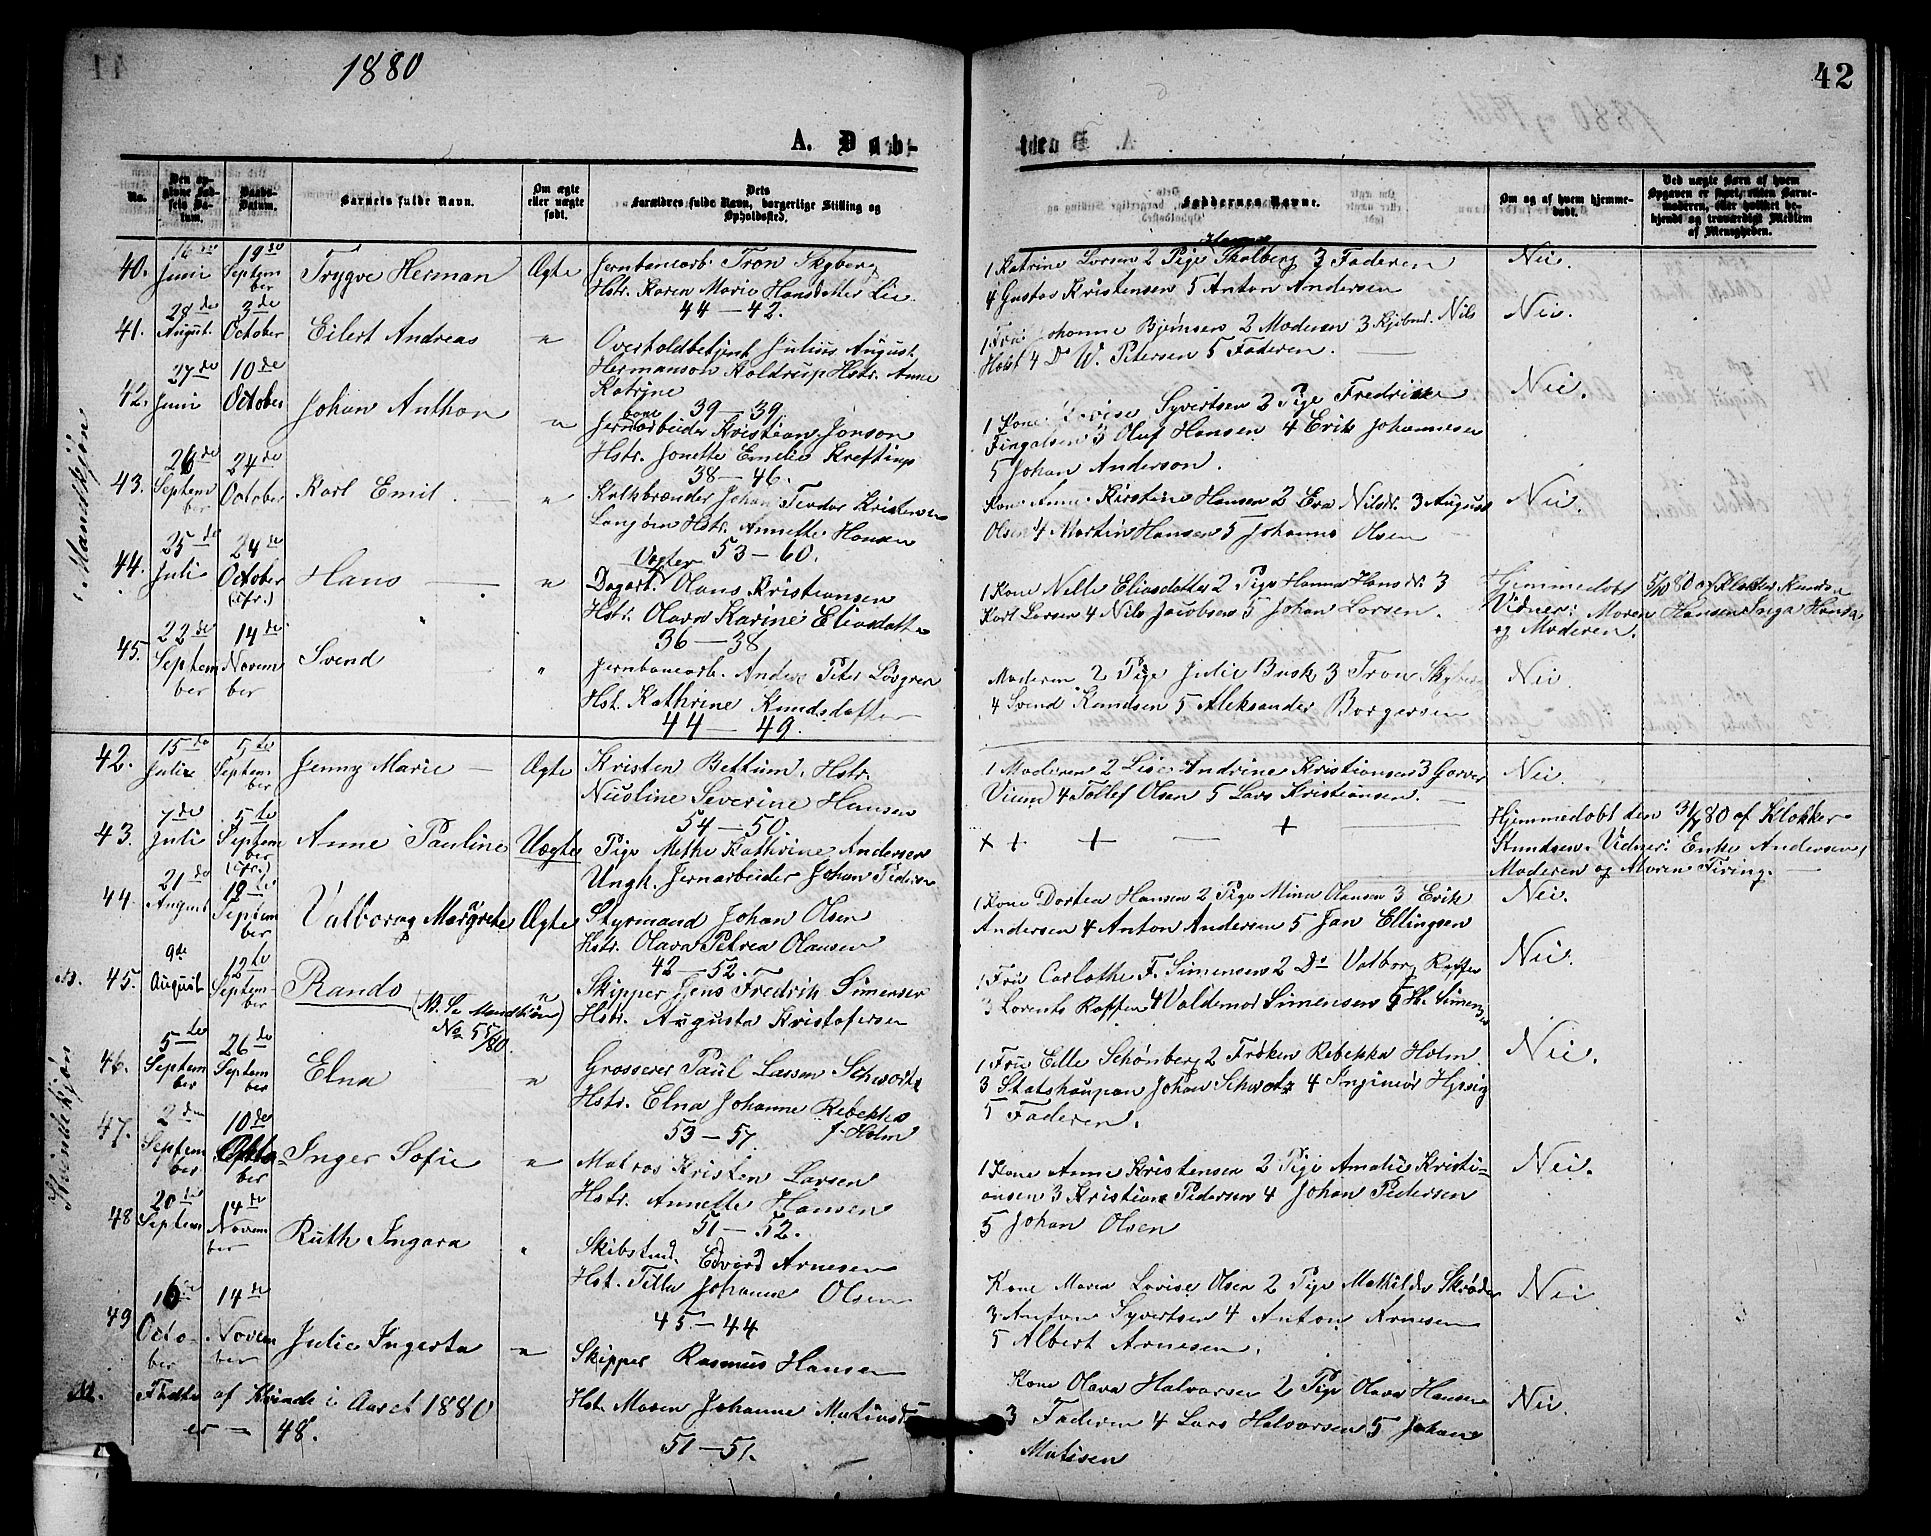 1880
42
A. Døb-
No.
Den op-
givne Fød-
sels Da-
tum.
Daabs-
Datum.
Barnets fulde Navn.
Om ægte
eller uægte
født.
Dets
Forældres fulde Navn, borgerlige Stilling og
Opholdssted.
Faddernes Navne.
Om og af hvem hjemme-
døbt.
Ved uægte Børn af hvem
Opgaven er skeet, uden Barne-
moderen, eller hvilket be-
kjendt og troværdigt Medlem
af Menigheden.
Mandkjøn
40. Juni 19de Septem
ber Trygve Herman Ægte Jernbanearb. Tron Skyberg
Hstr. Karen Marie Hansdatter Lie
44—42.
1 Katrine Larsen 2 Pige Hanna Thalberg 3 Faderen
4 Gustav Kristensen 5 Anton Andersen
Nei.
41. 28de August. 3de October Eilert Andreas " Overtoldbetjent Julius August
Hermanson Holdrup Hstr. Anne
Katrine
39—39.
1 Fru Johanne Bjørnsen 2 Moderen 3 Kjøbmd. Nils
Holst 4 Do W. Petersen 5 Faderen.
Nei.
42. 27de Juni 10de October Johan Anthon " Jernbanearbeider Kristian Jonson
Hstr. Jonette Emelie Kreftings
38—46.
1 Kone Lovise Syvertsen 2 Pige Fredrikke
Fingalsen 3 Oluf Hansen 4 Erik Johannesen
5 Johan Anderson.
Nei.
43. 26de Septem
ber 24de October Karl Emil. " Kalkbrænder Johan Teodor Kristensen
Langøen Hstr. Annette Hansen
53—60.
Kone Anne Kirstine Hansen 2 Eva Nilsdr. 3 August
Olsen 4 Martin Hansen 5 Johannes Olsen
Nei.
44. 25de Juli 24de October
Hans " Vogter
Dagarb. Olaus Kristiansen
Hstr. Olava Karine Eliasdatter
36—38
1 Kone Nelle Eliasdatter 2 Pige Hanna Hansdr. 3
Karl Larsen 4 Nils Jacobsen 5 Johan Larsen.
Hjemmedøbt 5/10 80 af Klokker Knudsen
Vidner: Maren Hansen Inga Hansen
og Moderen.
45. 22de Septem
ber 14de Novem
ber Svend " Jernbanearb. Anders Peter Løvgren
Hst. Kathrine Knudsdatter
44—49.
Moderen 2 Pige Julie Busk 3 Tron Skyberg
4 Svend Knudsen 5 Aleksander Borgersen
Nei
Kvindekjøn
42. 15de Juli 5te Septem
ber Jenny Marie Ægte Kristen Bettum. Hstr.
Nicoline Severine Hansen
54—50.
1 Moderen 2 Lise Andrine Kristiansen 3 Garver
Vium 4 Tollef Olsen 5 Lars Kristiansen.
Nei.
43. 7de Juli 5te Septem
ber Anne Pauline Uægte Pige Methe Kathrine Andersen
Ungk. Jernarbeider Johan Pedersen
+ + + +
Hjemmedøbt den 31/7 80 af Klokker
Knudsen. Vidner: Enke Andersen,
Moderen og Maren Firing.
44 21de August 12te Septem
ber Valborg Margrete Ægte Styrmand Johan Olsen
Hstr. Olava Petrea Olausen
42—52.
1 Kone Dorthea Hansen 2 Pige Mina Olausen 3 Erik
Andersen 4 Anton Andersen 5 Jan Ellingsen
Nei.
45. 9de August 12te Septem-
ber Rando
(NB. Se Mandkjøn
No 55/80.) Skipper Jens Fredrik Simensen
Hstr. Augusta Kristofersen
1 Fru Carlothe F. Simensen 2 Do Valborg Raffen
3 Lorents Raffen 4 Valdemar Simensen 5 H. Simensen
Nei.
46. 5te Septem
ber 26de Septem
ber Elna " Grosserer Paul Lassen Schwartz
Hstr. Elna Johanne Rebekka
f. Holm
53—57
1 Fru Elle Schønberg 2 Frøken Rebekka Holm
3 Statshauptm Johan Schwartz 4 Ingeniør
5 Faderen.
Nei.
47. 2den Septem
ber 10de Okto-
ber Inger Sofie " Matros Kristen Larsen
Hstr. Annette Hansen
51—52.
1 Kone Anne Kristensen 2 Pige Amalie Kristi-
ansen 3 Kristian Pedersen 4 Johan Pedersen
5 Johan Olsen
Nei.
48 20de Septem 14de Novem
ber Ruth Ingara " Skibstmd. Edvard Arnesen
Hst. Tilla Johanne Olsen
45.—44
Kone Maren Lovise Olsen 2 Pige Mathilde Skrøder
3 Anton Syvertsen 4 Anton Arnesen
5 Albert Arnesen.
Nei
49 16de Octo-
ber 14de Novem
ber Julie Ingerta " Skipper Rasmus Hansen
Hst. Maren Johanne
51—51.
Kone Olava Halvorsen 2 Pige Olava Hansen
3 Faderen 4 Lars Halvorsen 5 Johan
Matisen
Nei.
Fødte af Kvinde i Aaret 1880
er — 48.